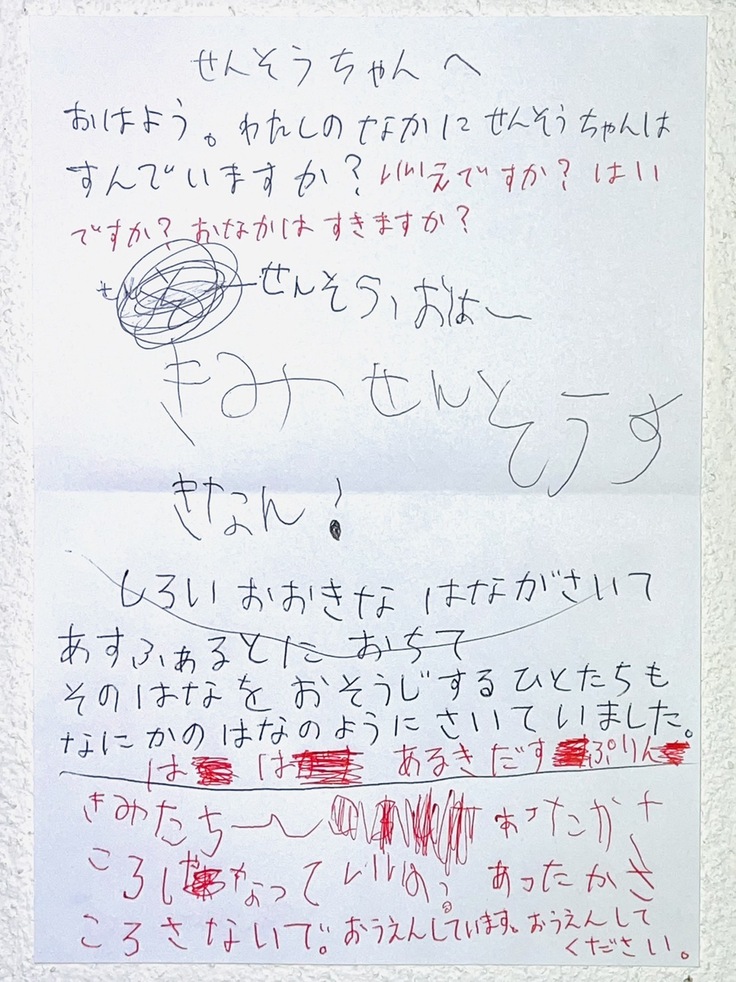 せんそうちゃんへ
おはよう。わたしのなかにせんそうちゃんは
すんでいますか？いいえですか？はい
ですか？おなかはすきますか？
せんそう、おはー
きみせんそうす
きなん！
しろいおおきなはながさいて
あすふぁるとにおちて
そのはなをおそうじするひとたちも
なにかのはなのようにさいていました。
は は あるきだす ぷりん
きみたちー あったかさ
ころし なっていいの？あったかさ
ころさないで。おうえんしています。おうえんして
ください。